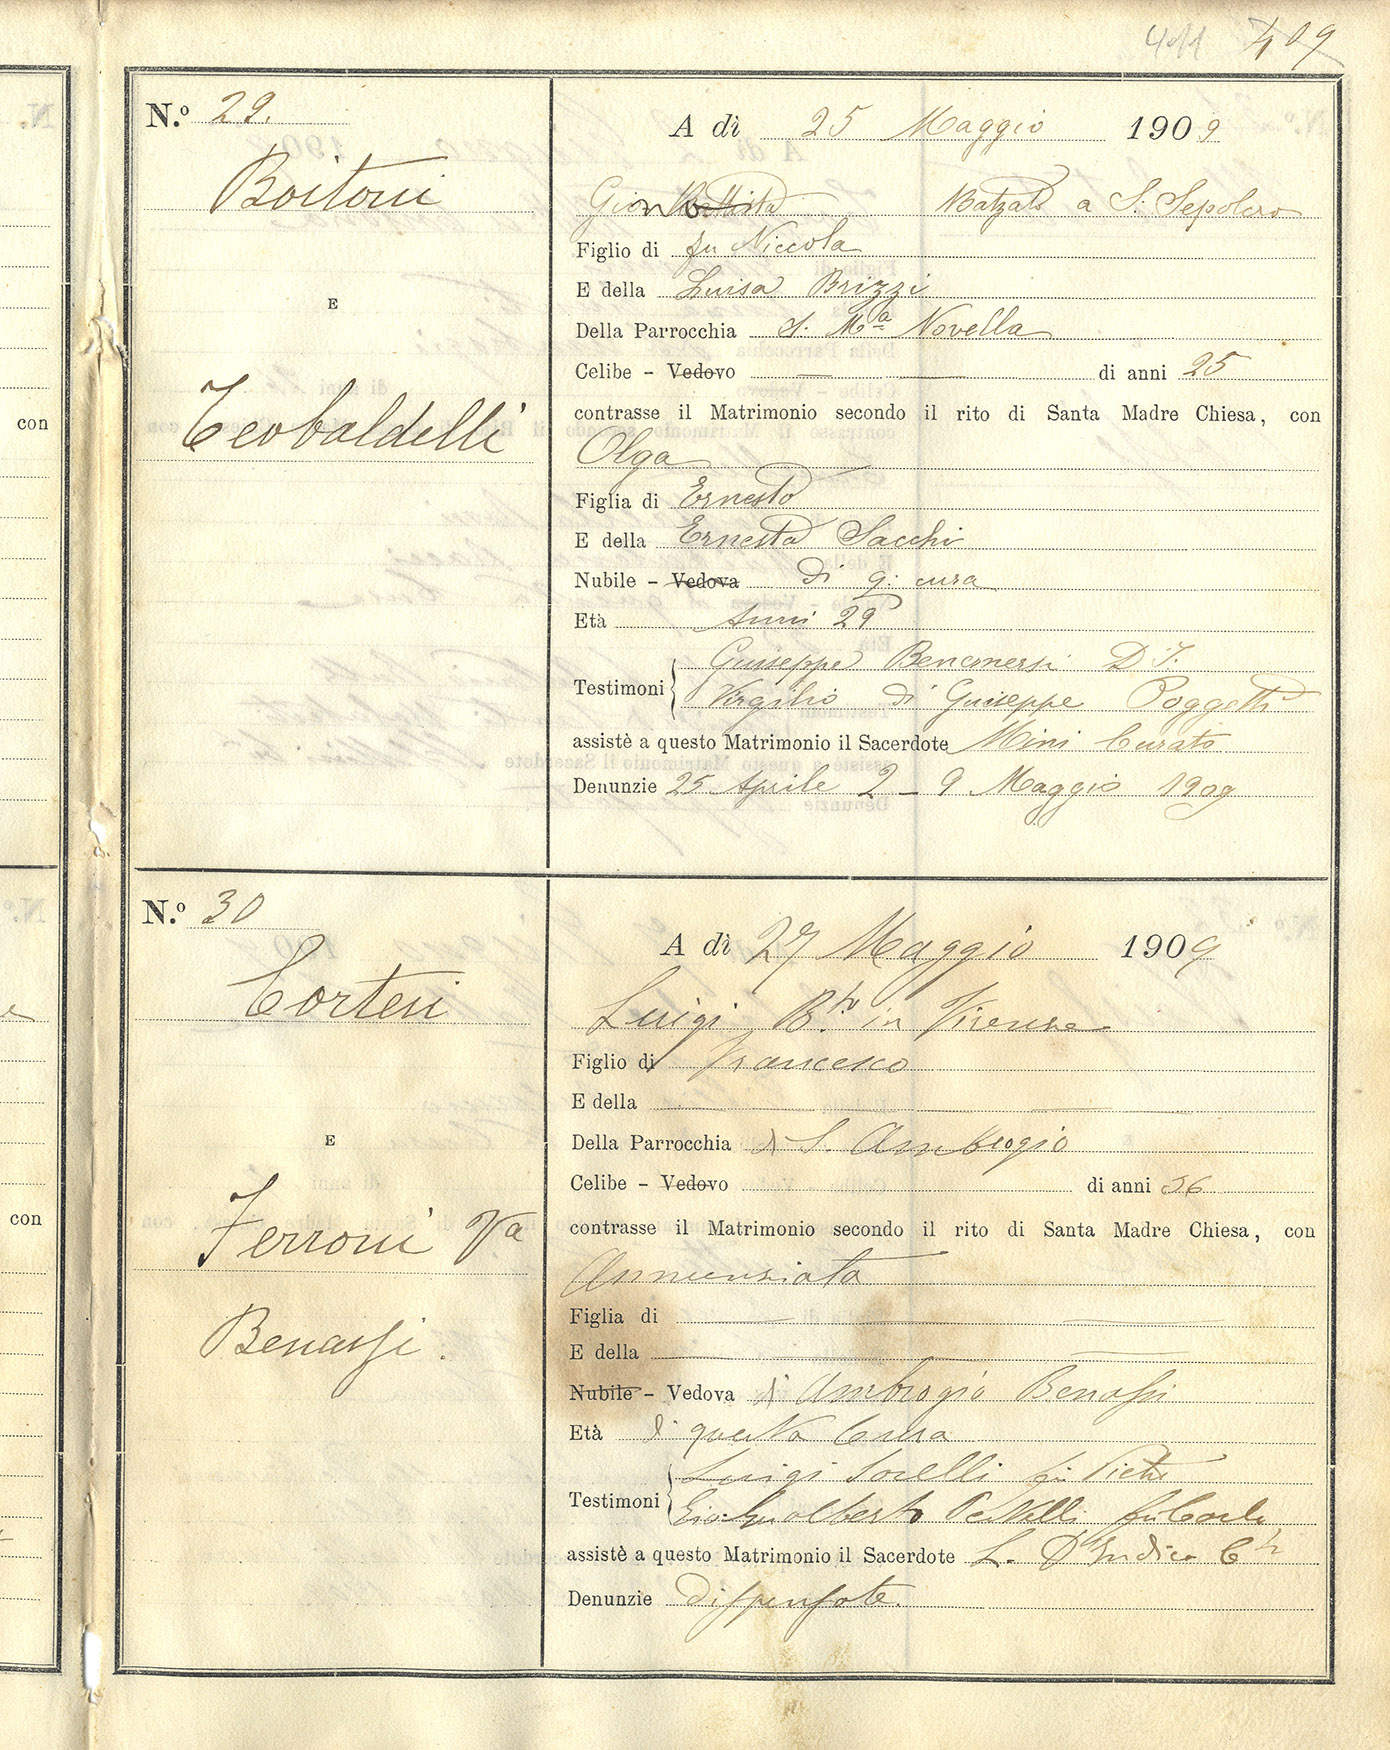 411 409
N.º 29.
Boitoni
E
Teobaldelli
A dì 25 Maggio 1909
Gion Battista Batzato a S. Sepolcro
Figlio di fu Niccola
E della Luisa Brizzi
Della Parrocchia S. Mª Novella
Celibe - Vedovo — — di anni 25
contrasse il Matrimonio secondo il rito di Santa Madre Chiesa, con
Olga
Figlia di Ernesto
E della Ernesta Sacchi
Nubile - Vedova di q: cura
Età Anni 29
Testimoni Giuseppe
Virgilio di Giuseppe Poggetti
assistè a questo Matrimonio il Sacerdote Mini Curato
Denunzie 25 Aprile 2 - 9 Maggio 1909
N.º 30
Corteri
E
Ferroni Va
Benassi.
A dì 27 Maggio 1909
Luigi B.to in Firenze
Figlio di Francesco
E della —
Della Parrocchia di S. Ambrogio
Celibe - Vedovo di anni 56
contrasse il Matrimonio secondo il rito di Santa Madre Chiesa, con
Annunziata
Figlia di —
E della —
Nubile - Vedova di Ambrogio Benassi
Età di questa Cura
Testimoni Luigi Sorelli fu Pietro
Gio: Gualberto fu Carlo
assistè a questo Matrimonio il Sacerdote L. Del
Denunzie dispensate.
con
con